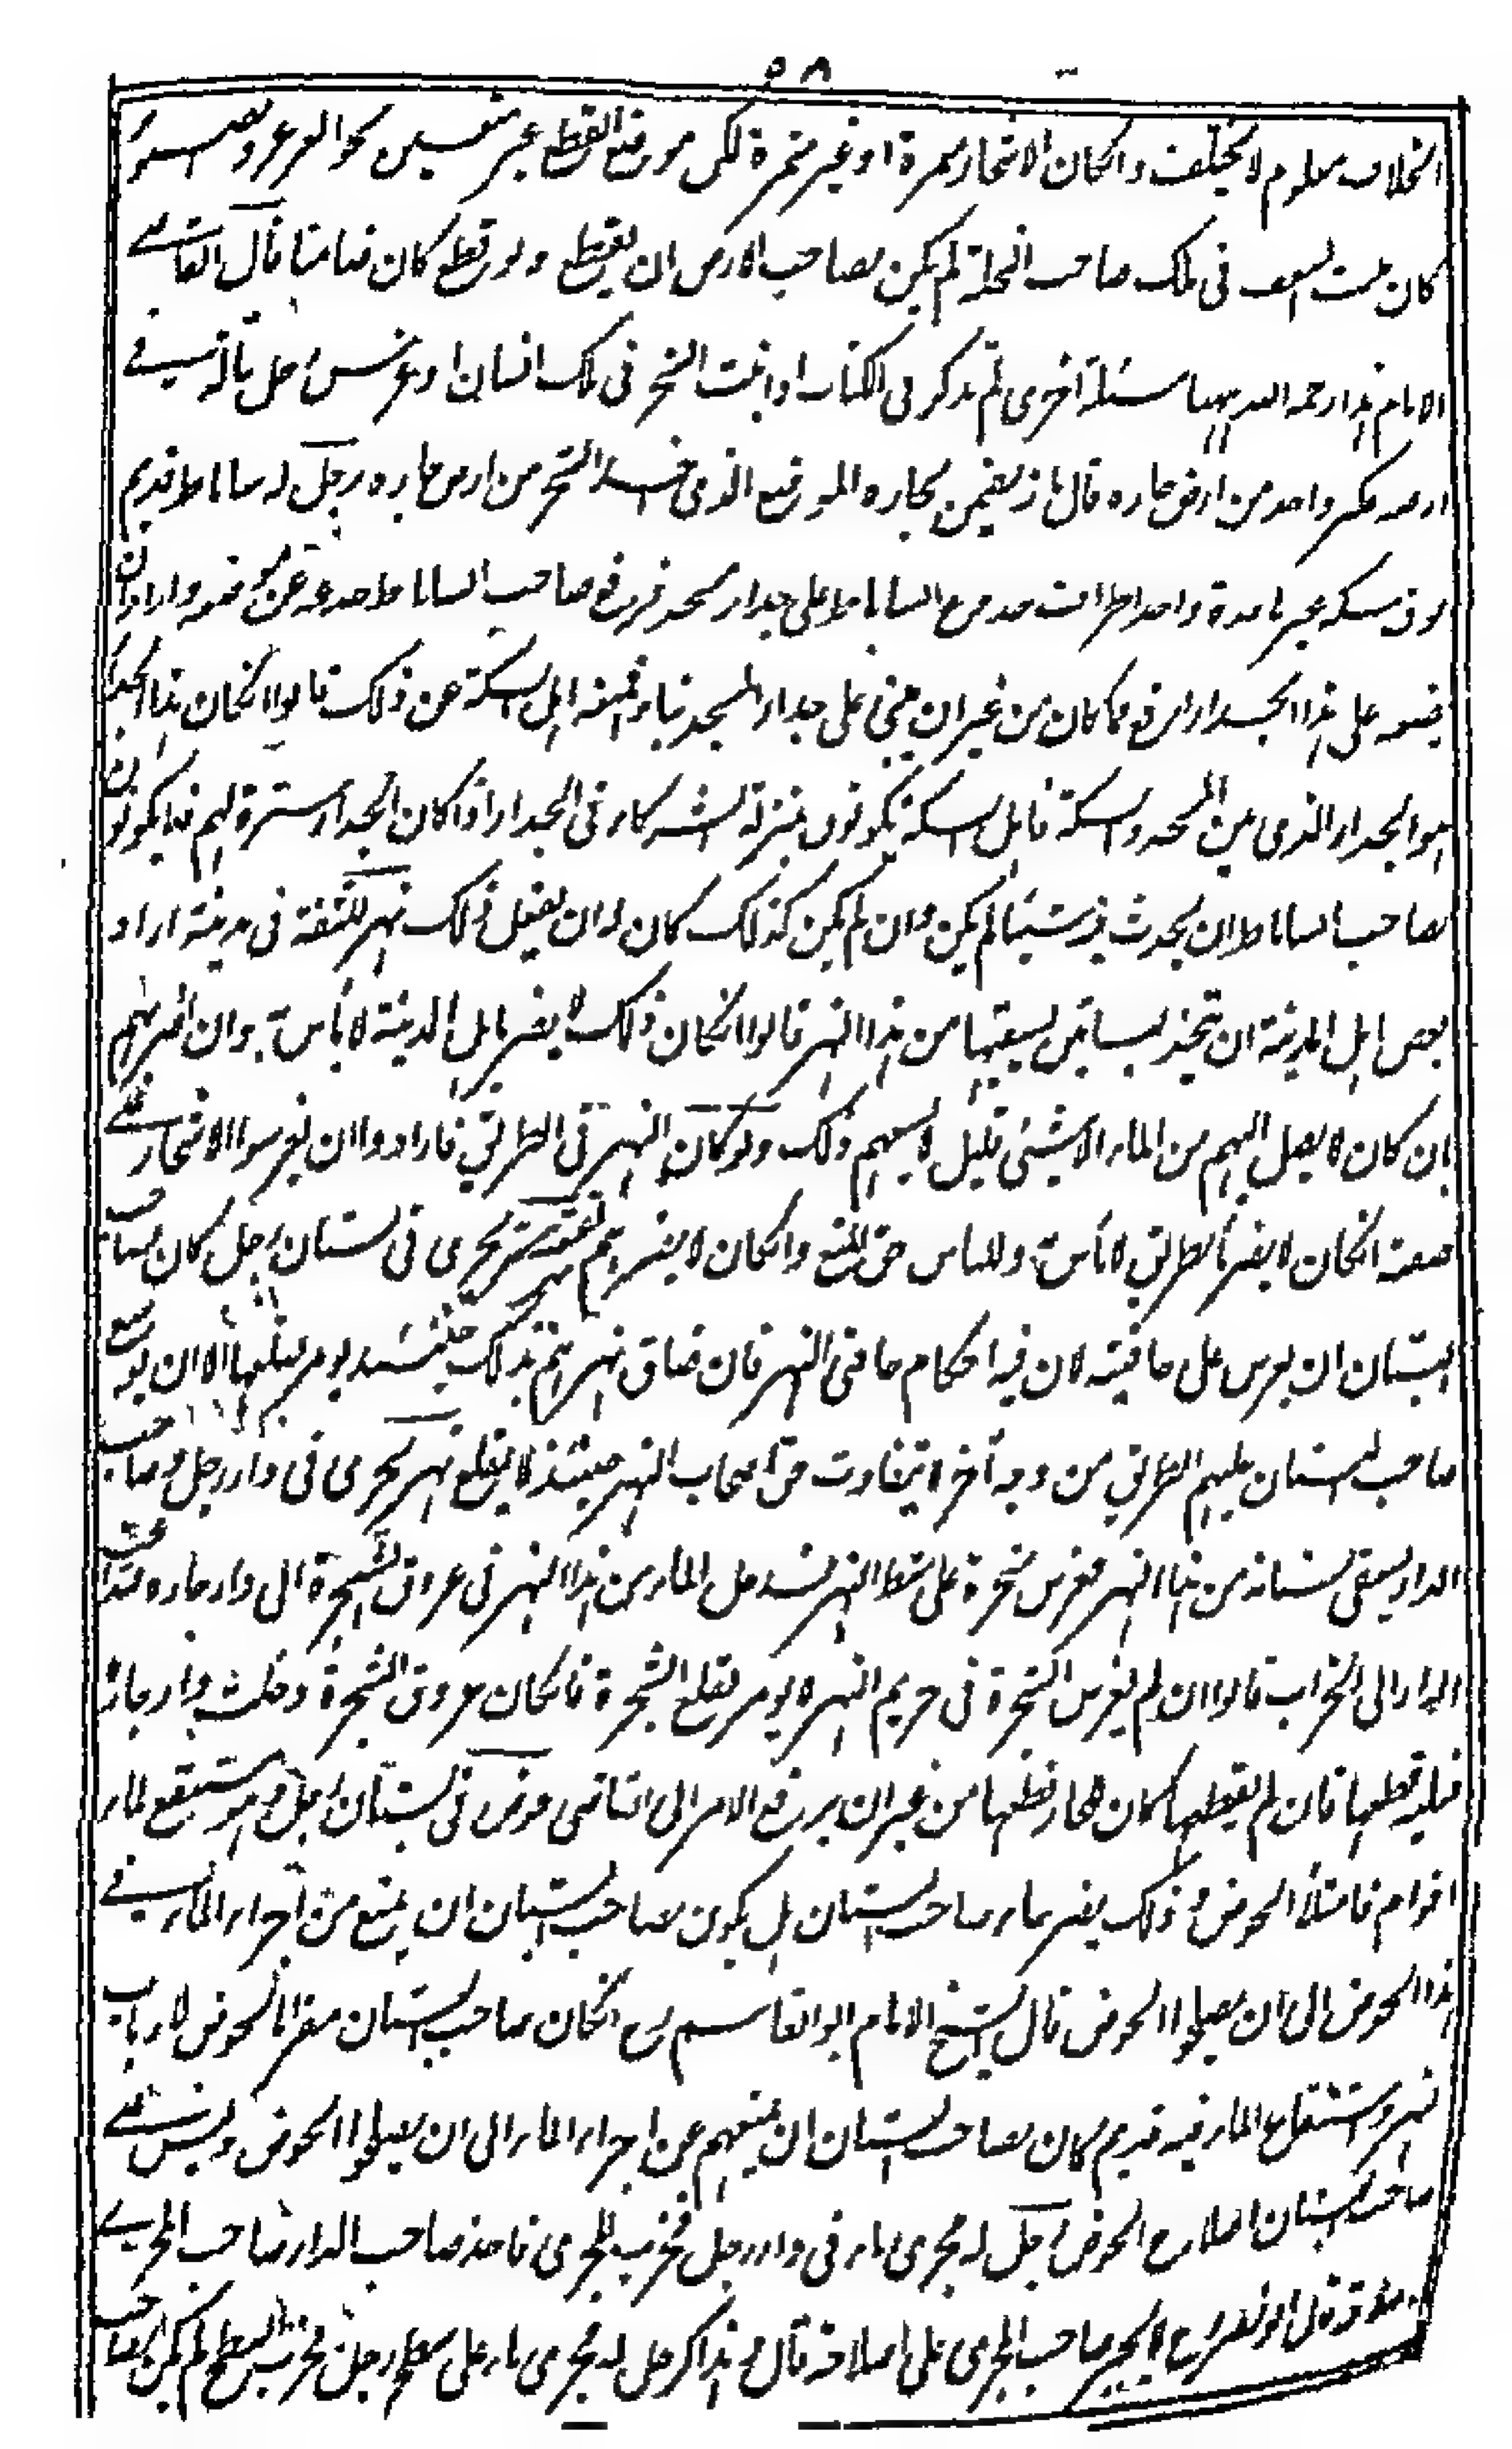 ٥٨
الخلاف معلوم لا يختلف وانكان الاشجار مثمرة او غير مثمرة لكن موضع القطع غير متعين نحو العرعر
كان بيت السعف فى ملك صاحب النخلة لم يكن لصاحب الارض ان يقطع ولو قطع كان ضامنا قال القاضى
الامام هذا رحمه الله ههنا مسئلة اخرى لم تذكر فى الكتاب اذا نبت الشجر فى ملك انسان او غرس رجل تالة فى
ارضه من ارض جاره قال يضمن لجاره الموضع الذى الشجر من ارض جاره رجل له ساباط قديم
فوق سكة غير نافذة واحد اطراف جذوع الساباط على جدار مسجد فرفع صاحب الساباط جذوعه عن موضعه واراد ان
يضعه على هذا الجدار ارفع مما كان من غير ان يبنى على جدار المسجد بناء فمنعه اهل السكة عن ذلك قالوا انكان هذا الجدار
هو الجدار الذى بين المسجد والسكة فاهل السكة يكونون بمنزلة الشركاء فى الجدار اذا كان الجدار سترة لهم فلا يكون
لصاحب الساباط ان يحدث فيه شيئا لم يكن وان لم يكن كذلك كان له ان يفعل ذلك نهر للشفة فى مدينة اراد
بعض اهل المدينة ان يتخذ بساتين يسقيها من هذا النهر قالوا انكان ذلك لا يضر باهل المدينة لا بأس به وان اضر بهم
بان كان لا يصل اليهم من الماء الا شيئ قليل لا يسعهم ذلك ولو كان النهر فى الطريق فارادوا ان يغرسوا الاشجار على
ضفته انكان لا يضر بالطريق لا بأس به وللناس حق المنع وانكان لا يضر بهم نهر يجرى فى بستان رجل كان لصاحب
البستان ان يغرس على حافتيه لان فيه احكام حافتى النهر فان ضاق نهرهم بذلك حينئذ يؤمر بقلعها الا ان يوسع
صاحب البستان عليهم الطريق من وجه آخر لا يتفاوت حق اصحاب النهر حينئذ لا يقلع نهر يجرى فى دار رجل وصاحب
الدار يسقى بستانه من هذا النهر فغرس شجرة على شط النهر فدخل الماء من هذا النهر فى عروق الشجرة الى دار جاره فتداعت
الدار الى الخراب قالوا ان لم يغرس الشجرة فى حريم النهر لا يؤمر بقلع الشجرة فانكان عروق الشجرة دخلت دار جاره
فعليه قطعها فان لم يقطعها كان للجار قطعها من غير ان يرفع الامر الى القاضى حوض فى بستان رجل وهو مستنقع لماء
اقوام فامتلأ الحوض وذلك يضر بماء صاحب البستان هل يكون لصاحب البستان ان يمنع من اجراء الماء فى
هذا الحوض الى ان يصلحوا الحوض قال الشيخ الامام ابو القاسم رح انكان صاحب البستان مقرا بالحوض لارباب
نهر ومستنقع الماء فيه قديم كان لصاحب البستان ان يمنعهم عن اجراء الماء الى ان يصلحوا الحوض وليس على
صاحب البستان اصلاح الحوض رجل له مجرى ماء فى دار رجل فخرب المجرى فاخذ صاحب الدار صاحب المجرى
قال ابو نصر رح لا يجبر صاحب المجرى على اصلاحه قال وهذا كرجل له مجرى ماء على سطح رجل فخرب السطح لم يكن لصاحب